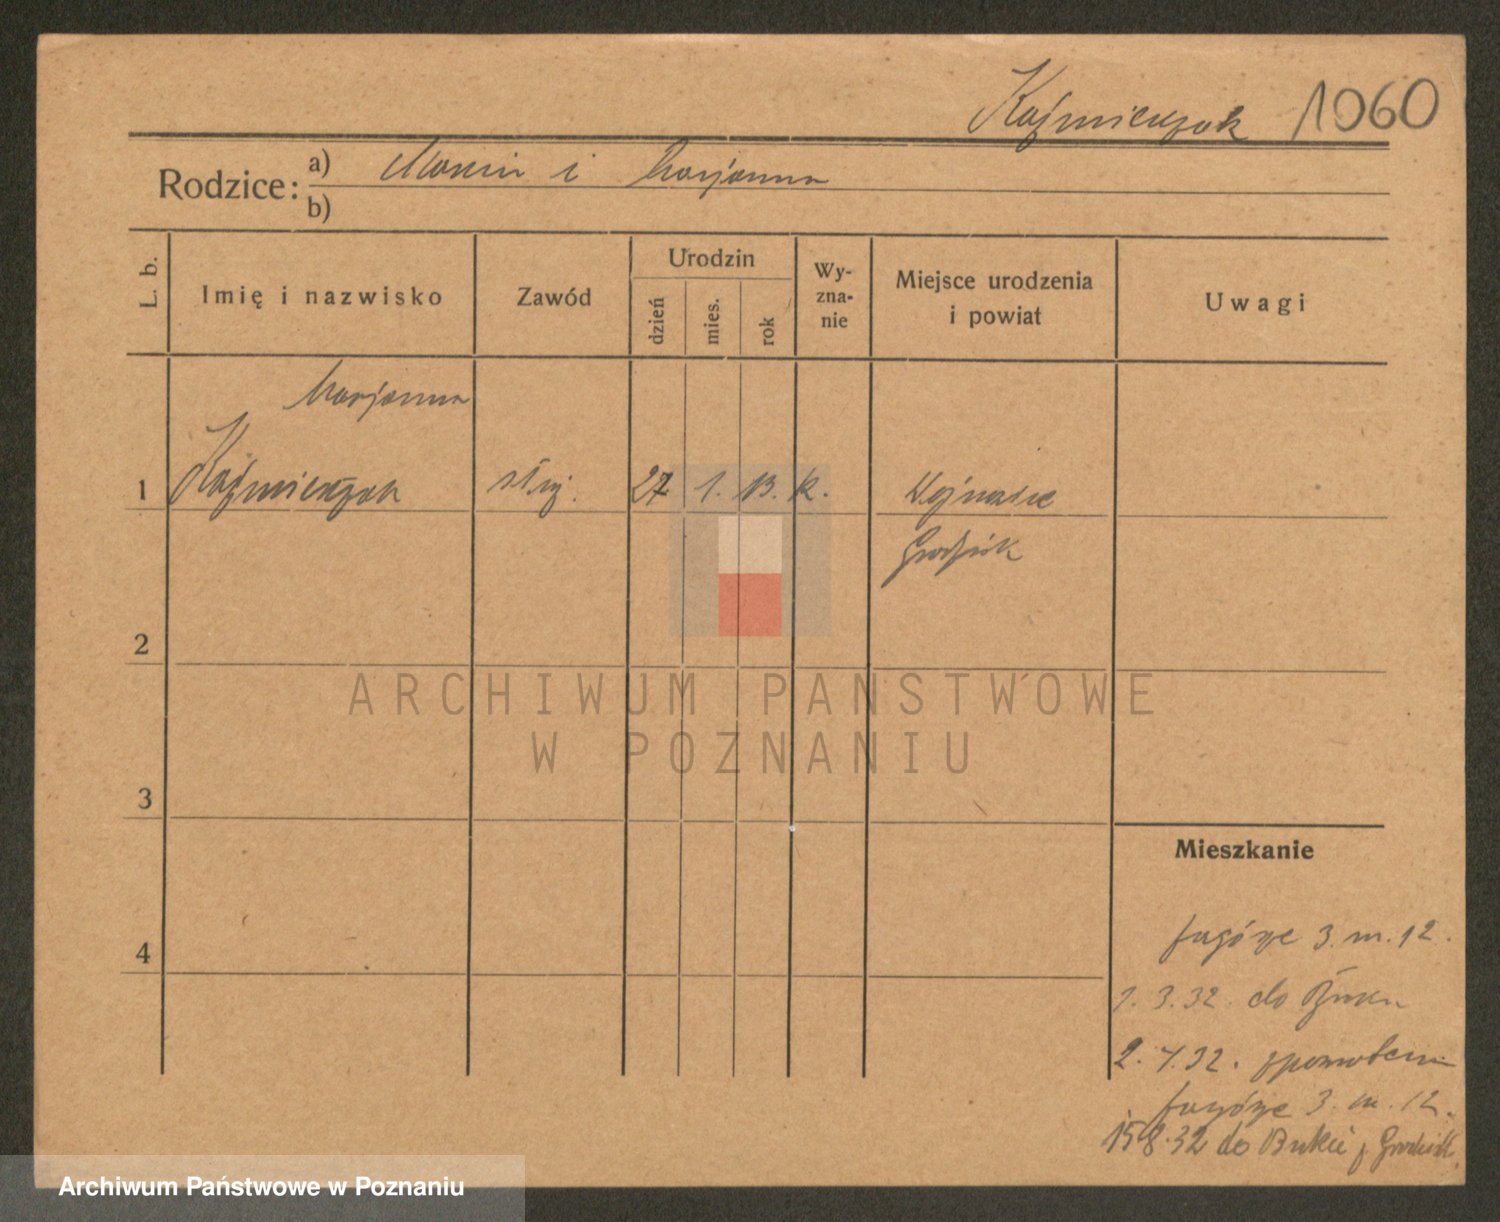 Kaźmierczak 1060
Rodzice: a) Marcin i Marjanna
b)
L. b.
Imię i nazwisko
Zawód
Urodzin
dzień
mies.
rok
Wy-
zna-
nie
Miejsce urodzenia
i powiat
Uwagi
Marjanna
1 Kaźmierczak służ. 27 1. 13. k. Wojnowice
Grodzisk
2
ARCHIWUM PAŃSTWOWE
W POZNANIU
3
Mieszkanie
3 m. 12.
4
1. 3. 32. do Buku
2. 7. 32. z powrotem
3 m. 12.
15.8.32 do p. Grodzisk
Archiwum Państwowe w Poznaniu